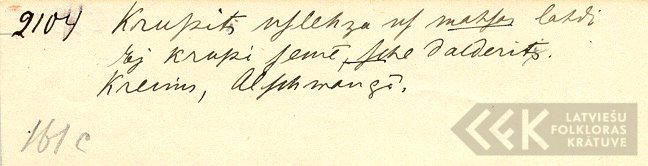 2104 Krupits uslehza us mahjas lahdi
Ej krupi semē, sche dalderits.
Kreums, Alschwangē.
161c
LATVIEŠU
FOLKLORAS
KRĀTUVE